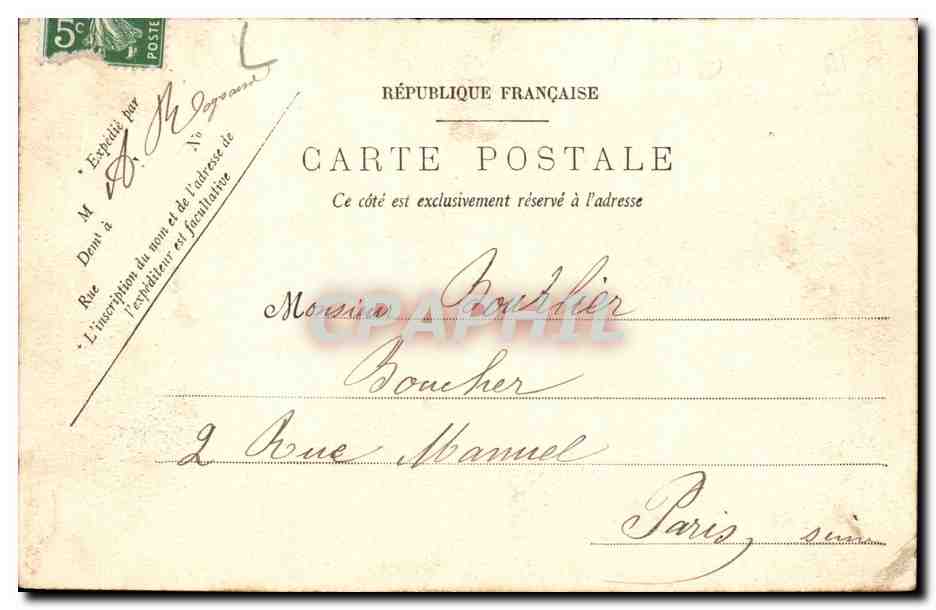 5c
POSTE
RÉPUBLIQUE FRANÇAISE
CARTE POSTALE
Ce côté est exclusivement réservé à l'adresse
* Expédié par
M A.
Demt à
Rue No
* L'inscription du nom et de l'adresse de
l'expéditeur est facultative
Monsieur Bouthier
Boucher
2 Rue Manuel
Paris, seine
CPAPHIL